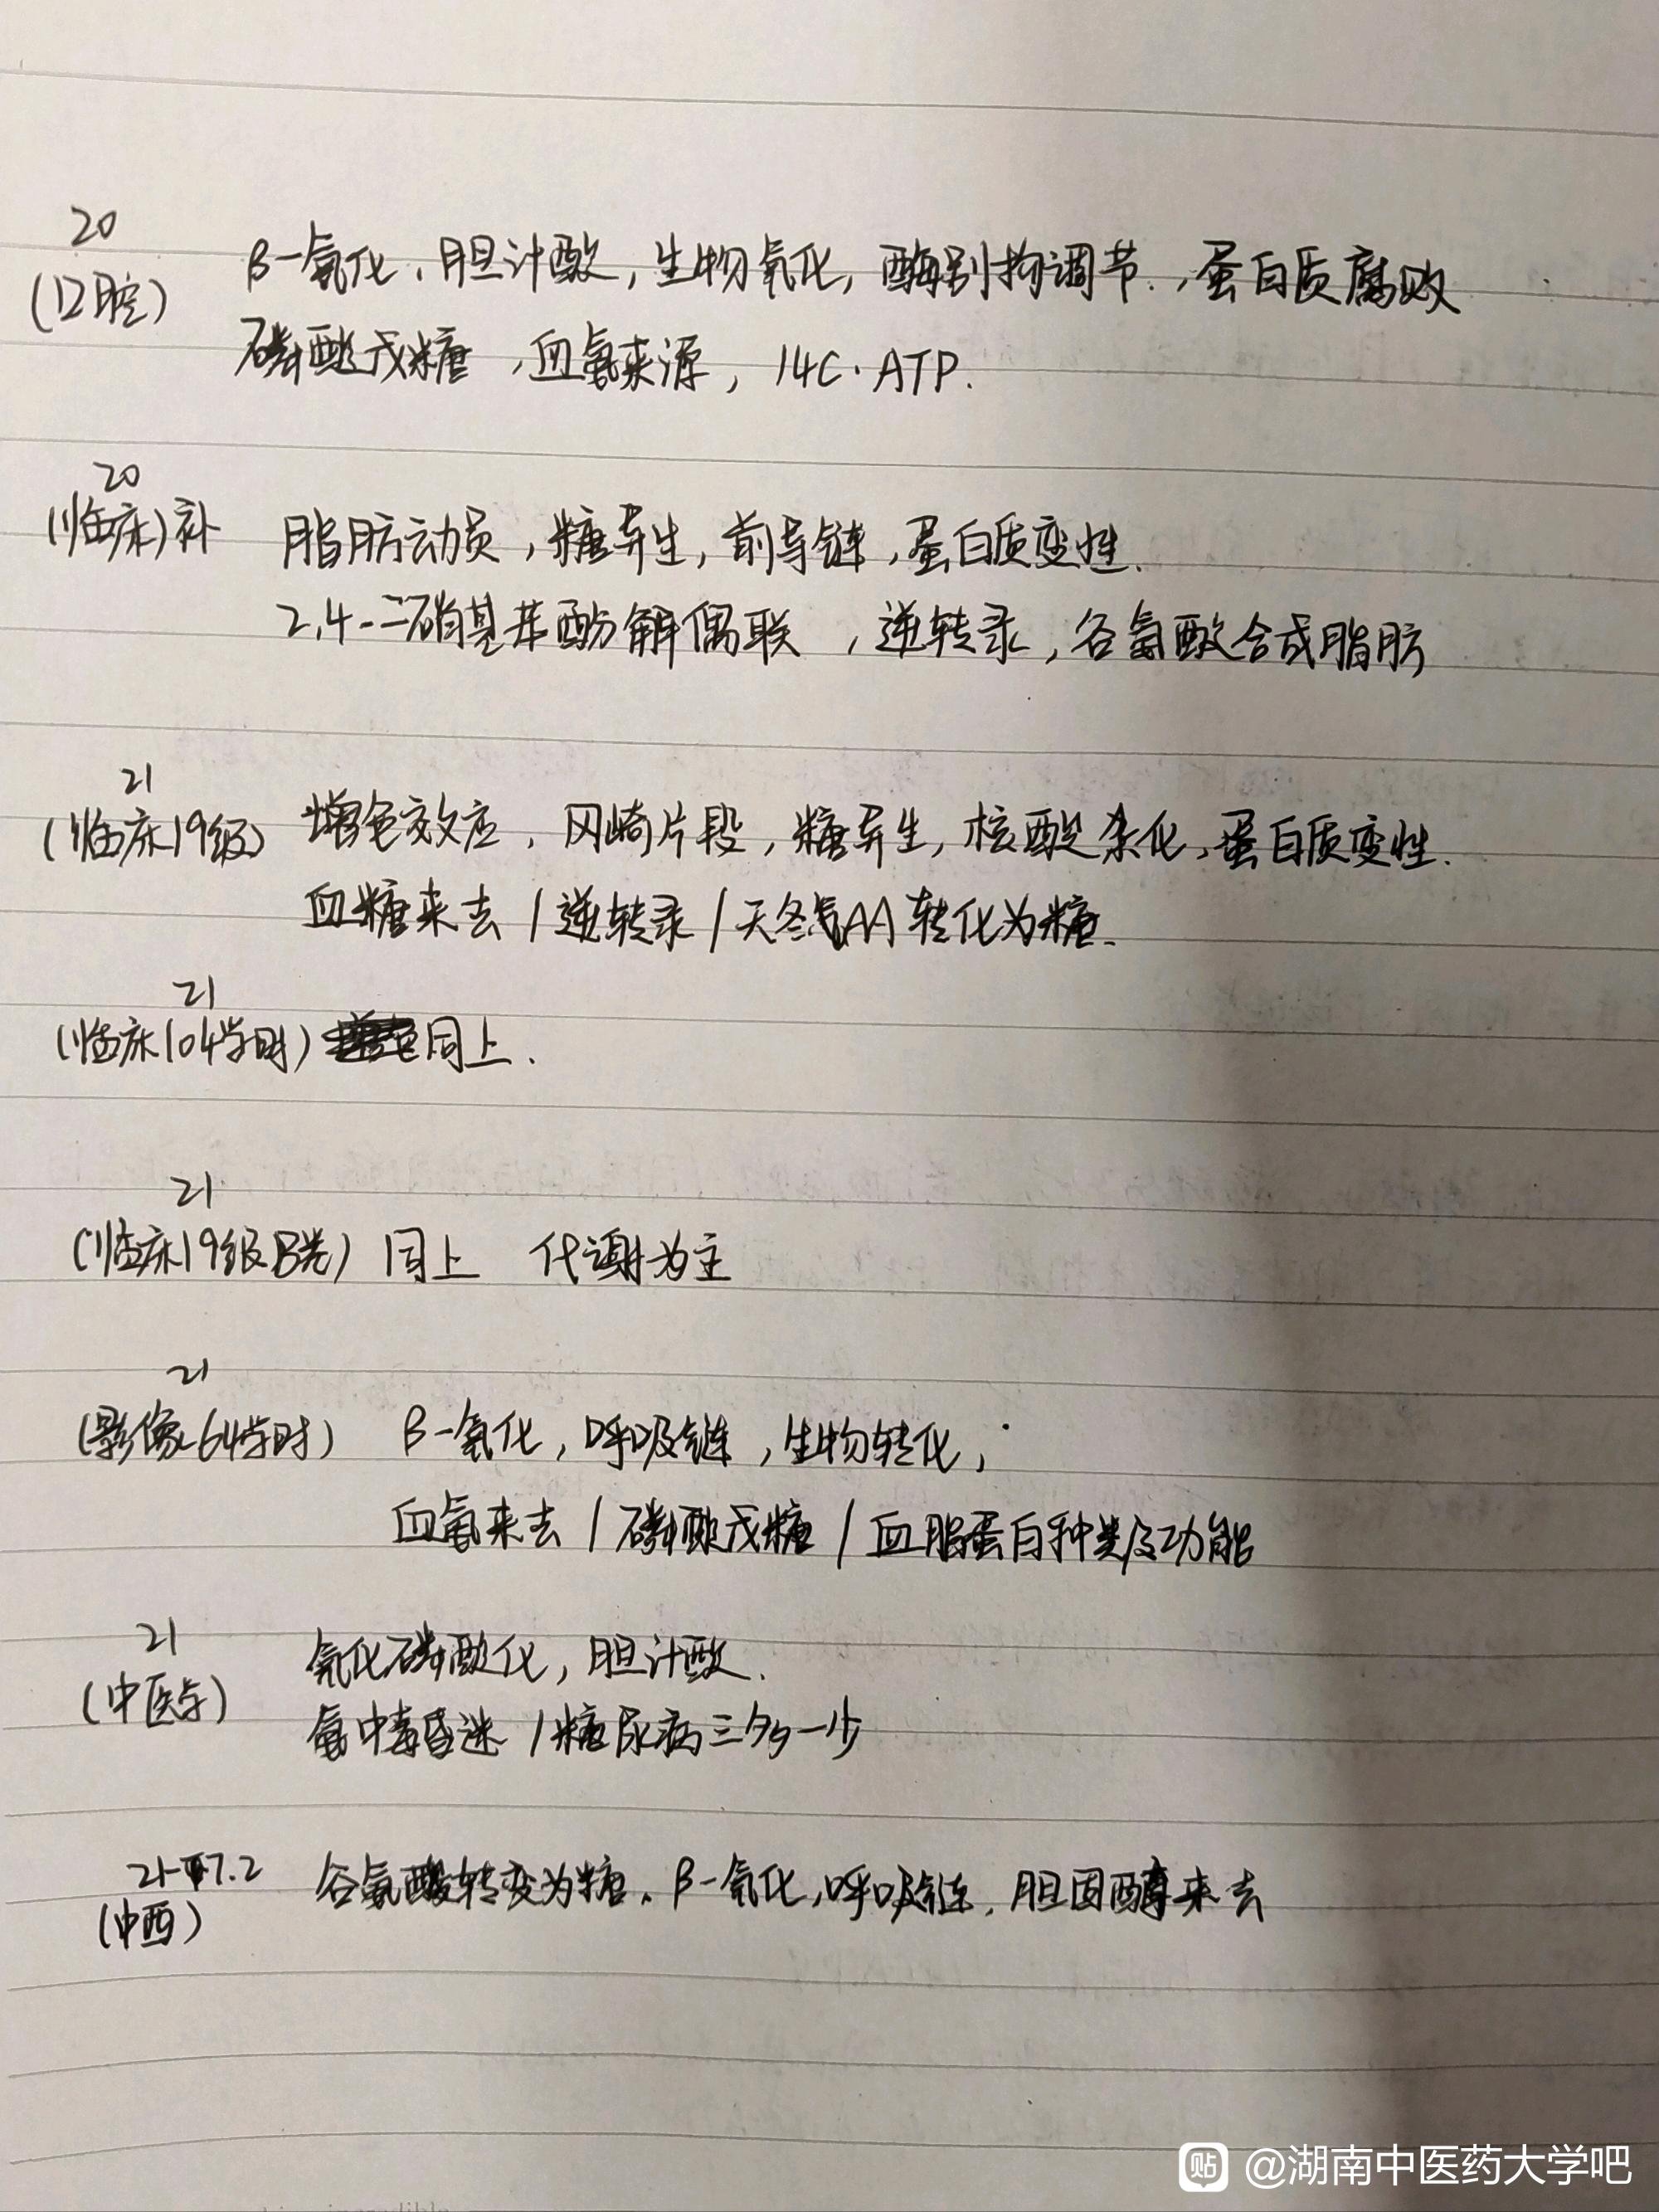 20
(口腔) β-氧化、胆汁酸,生物氧化,酶别构调节.,蛋白质腐败
磷酸戊糖,血氨来源,14C·ATP.
20
(临床)补 脂肪动员,糖异生,前导链,蛋白质变性.
2,4-二硝基苯酚解偶联,逆转录,谷氨酸合成脂肪
21
(临床19级) 增色效应,冈崎片段,糖异生,核酸杂化,蛋白质变性.
血糖来去/逆转录/天冬氨AA转化为糖.
21
(临床104学时) 同上.
21
(临床19级B卷) 同上 代谢为主
21
(影像64学时) β-氧化,呼吸链,生物转化,
血氨来去/磷酸戊糖/血脂蛋白种类及功能
21
(中医学) 氧化磷酸化,胆汁酸.
氨中毒昏迷/糖尿病三多一少
21-7.2
(中西) 谷氨酸转变为糖.β-氧化,呼吸链,胆固醇来去
贴 @湖南中医药大学吧